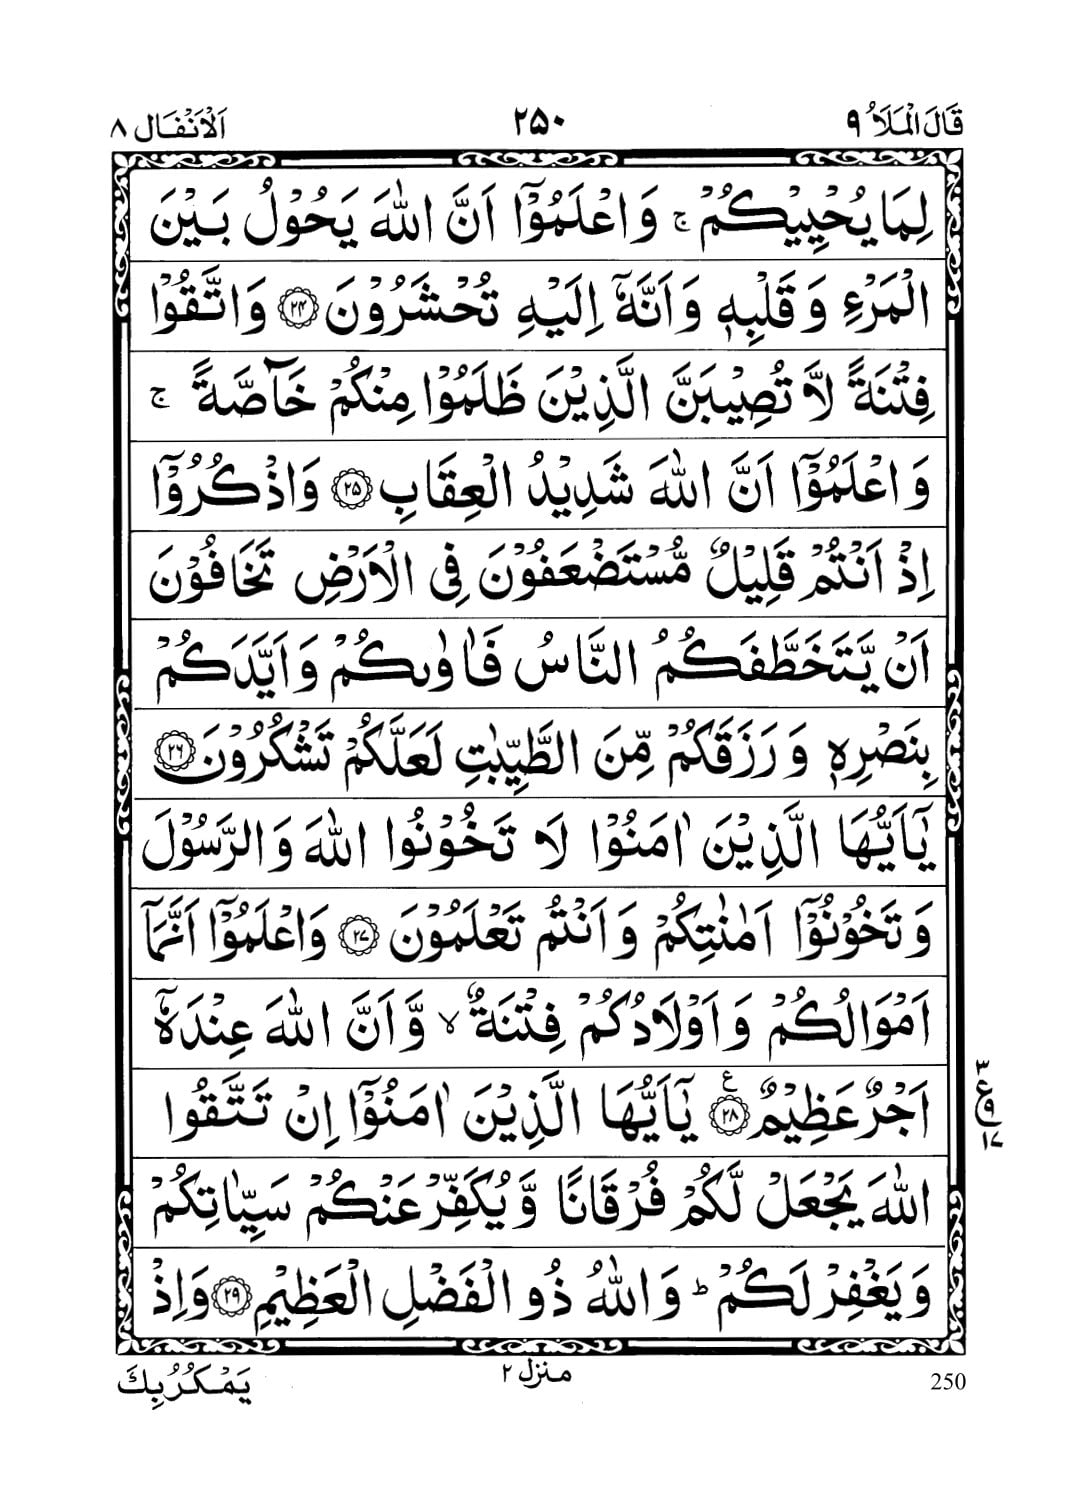 قَالَ الْمَلَاُ ٩
٢٥٠
اَلْاَنْفَال ٨
لِمَا يُحْيِيْكُمْ ۚ وَاعْلَمُوْۤا اَنَّ اللّٰهَ يَحُوْلُ بَيْنَ
الْمَرْءِ وَقَلْبِهٖ وَاَنَّهٗۤ اِلَيْهِ تُحْشَرُوْنَ ﴿۲۴﴾ وَاتَّقُوْا
فِتْنَةً لَّا تُصِيْبَنَّ الَّذِيْنَ ظَلَمُوْا مِنْكُمْ خَآصَّةً ۚ
وَاعْلَمُوْۤا اَنَّ اللّٰهَ شَدِيْدُ الْعِقَابِ ﴿۲۵﴾ وَاذْكُرُوْۤا
اِذْ اَنْتُمْ قَلِيْلٌ مُّسْتَضْعَفُوْنَ فِى الْاَرْضِ تَخَافُوْنَ
اَنْ يَّتَخَطَّفَكُمُ النَّاسُ فَاٰوٰىكُمْ وَاَيَّدَكُمْ
بِنَصْرِهٖ وَرَزَقَكُمْ مِّنَ الطَّيِّبٰتِ لَعَلَّكُمْ تَشْكُرُوْنَ ﴿۲۶﴾
يٰۤاَيُّهَا الَّذِيْنَ اٰمَنُوْا لَا تَخُوْنُوا اللّٰهَ وَالرَّسُوْلَ
وَتَخُوْنُوْۤا اَمٰنٰتِكُمْ وَاَنْتُمْ تَعْلَمُوْنَ ﴿۲۷﴾ وَاعْلَمُوْۤا اَنَّمَاۤ
اَمْوَالُكُمْ وَاَوْلَادُكُمْ فِتْنَةٌ ۙ وَّاَنَّ اللّٰهَ عِنْدَهٗۤ
اَجْرٌ عَظِيْمٌ ﴿۲۸﴾ ع يٰۤاَيُّهَا الَّذِيْنَ اٰمَنُوْۤا اِنْ تَتَّقُوا
٣ ع ٩ ١٧
اللّٰهَ يَجْعَلْ لَّكُمْ فُرْقَانًا وَّيُكَفِّرْ عَنْكُمْ سَيِّاٰتِكُمْ
وَيَغْفِرْ لَكُمْ ؕ وَاللّٰهُ ذُو الْفَضْلِ الْعَظِيْمِ ﴿۲۹﴾ وَاِذْ
يَمْكُرُ بِكَ
منزل ٢
250